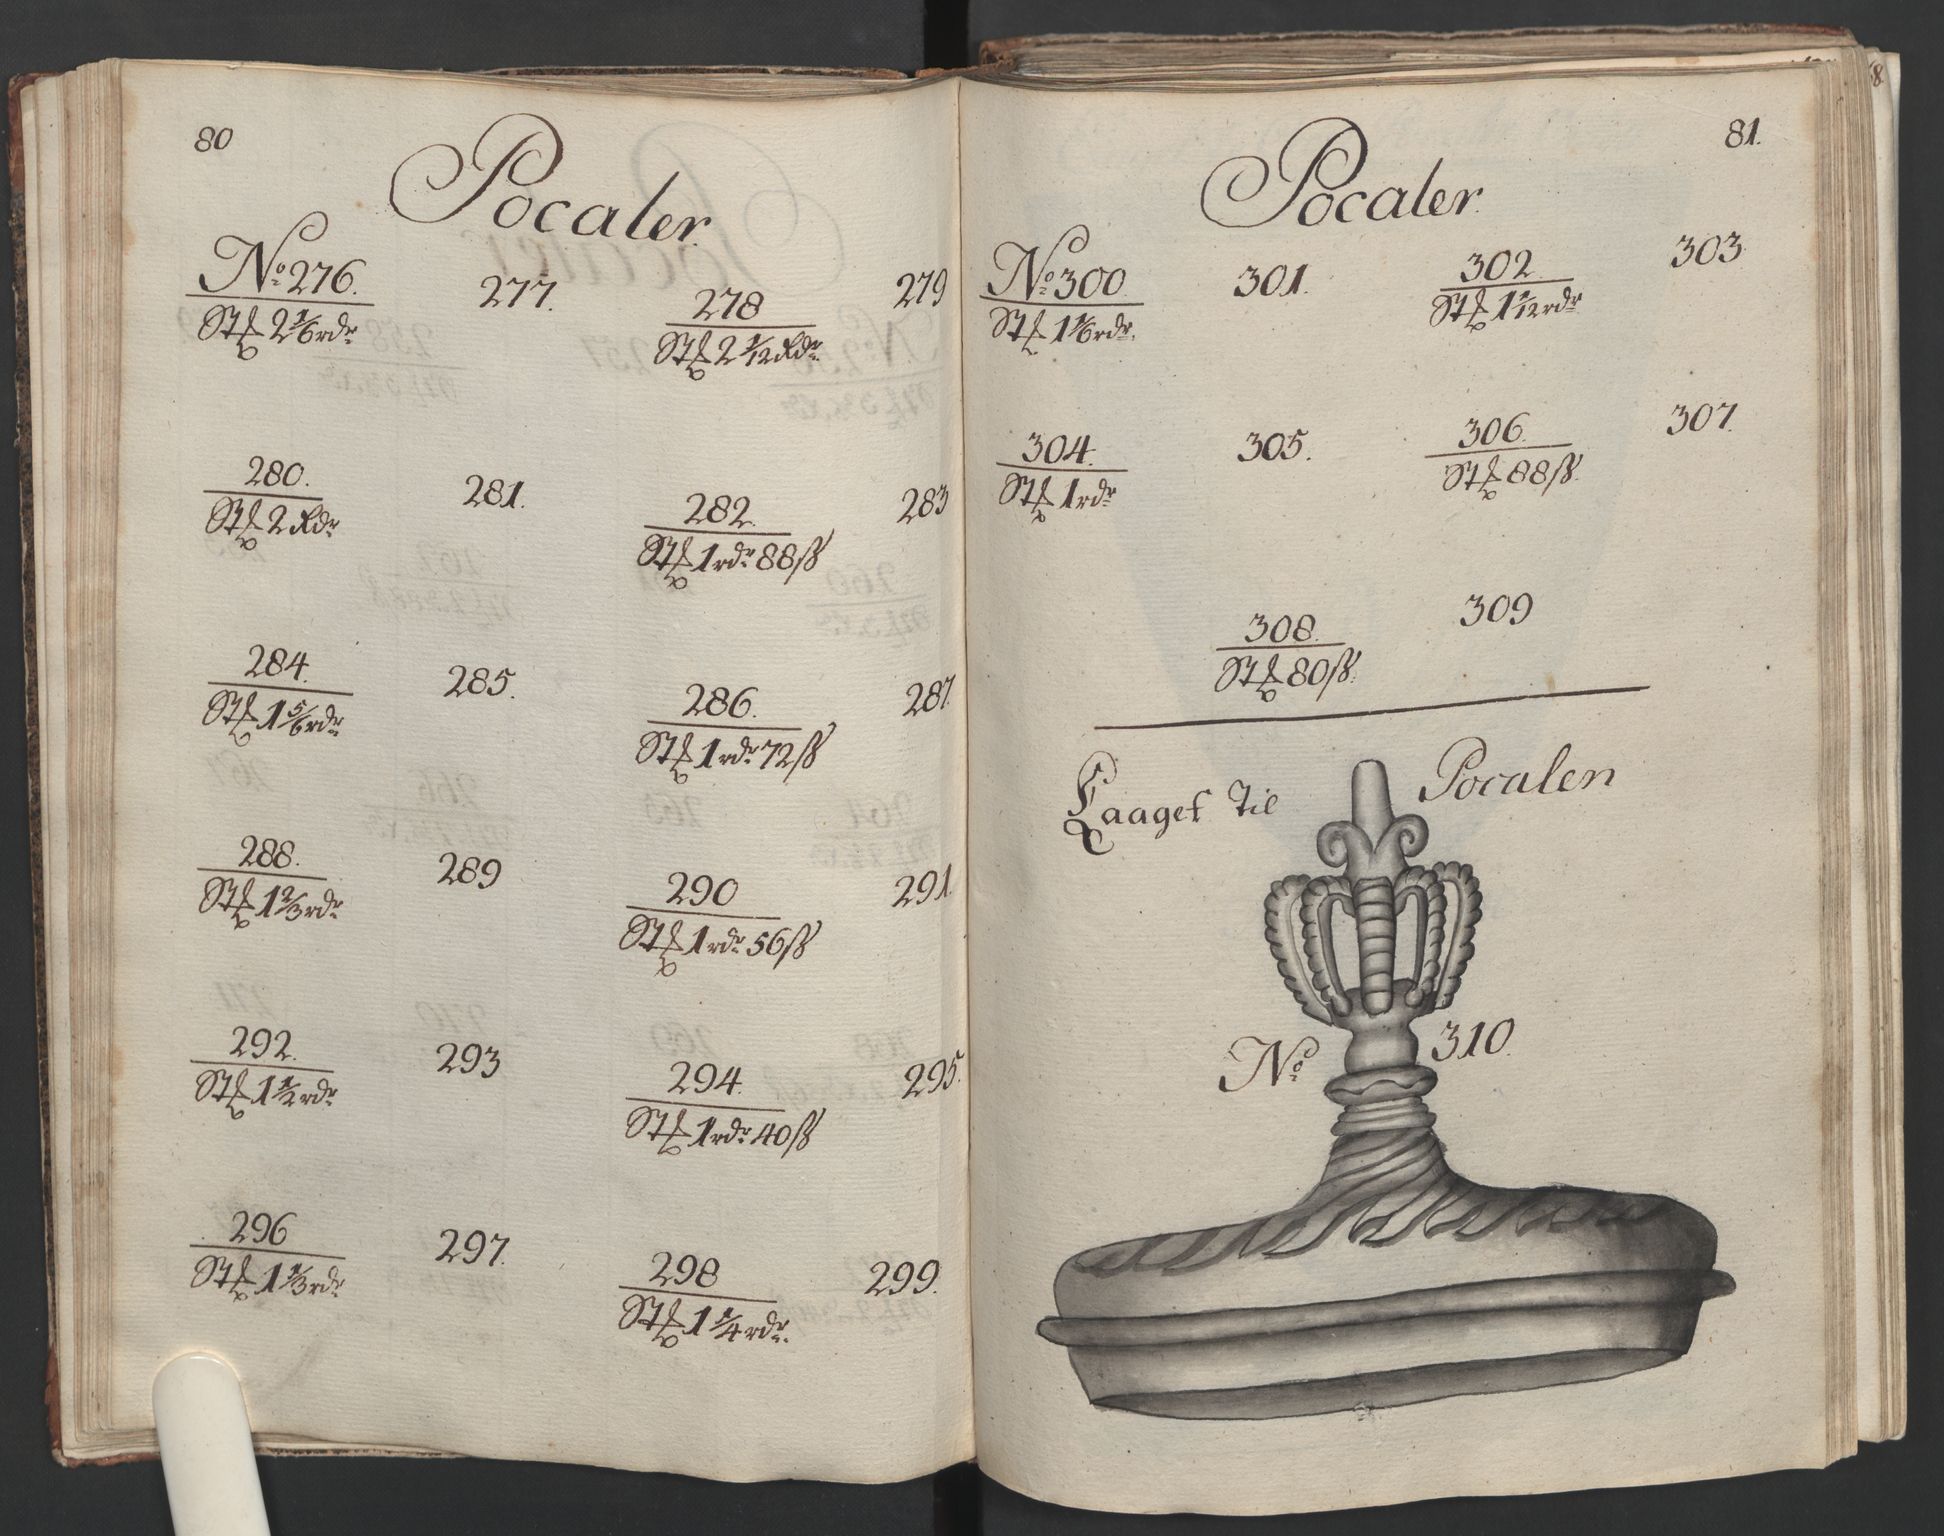 80
Pocaler.
No. 276. 277. 278 279
St 2 1/6 rdr St 2 1/12 Rdr
280. 281. 282. 283
St 2 Rdr St 1 rdr 88 ß
284. 285. 286. 287.
St 1 5/6 rdr St 1 rdr 72 ß
288. 289 290 291.
St 1 2/3 rdr St 1 rdr 56 ß
292. 293 294. 295.
St 1 1/2 rdr St 1 rdr 40 ß
296 297. 298 299.
St 1 1/3 rdr St 1 1/4 rdr.
81.
Pocaler.
No. 300 301. 302 303
St 1 1/6 rdr. St 1 1/12 rdr
304. 305. 306. 307.
St 1 rdr St 88 ß
308. 309
St 80 ß.
Laaget Til Pocalen
No. 310.